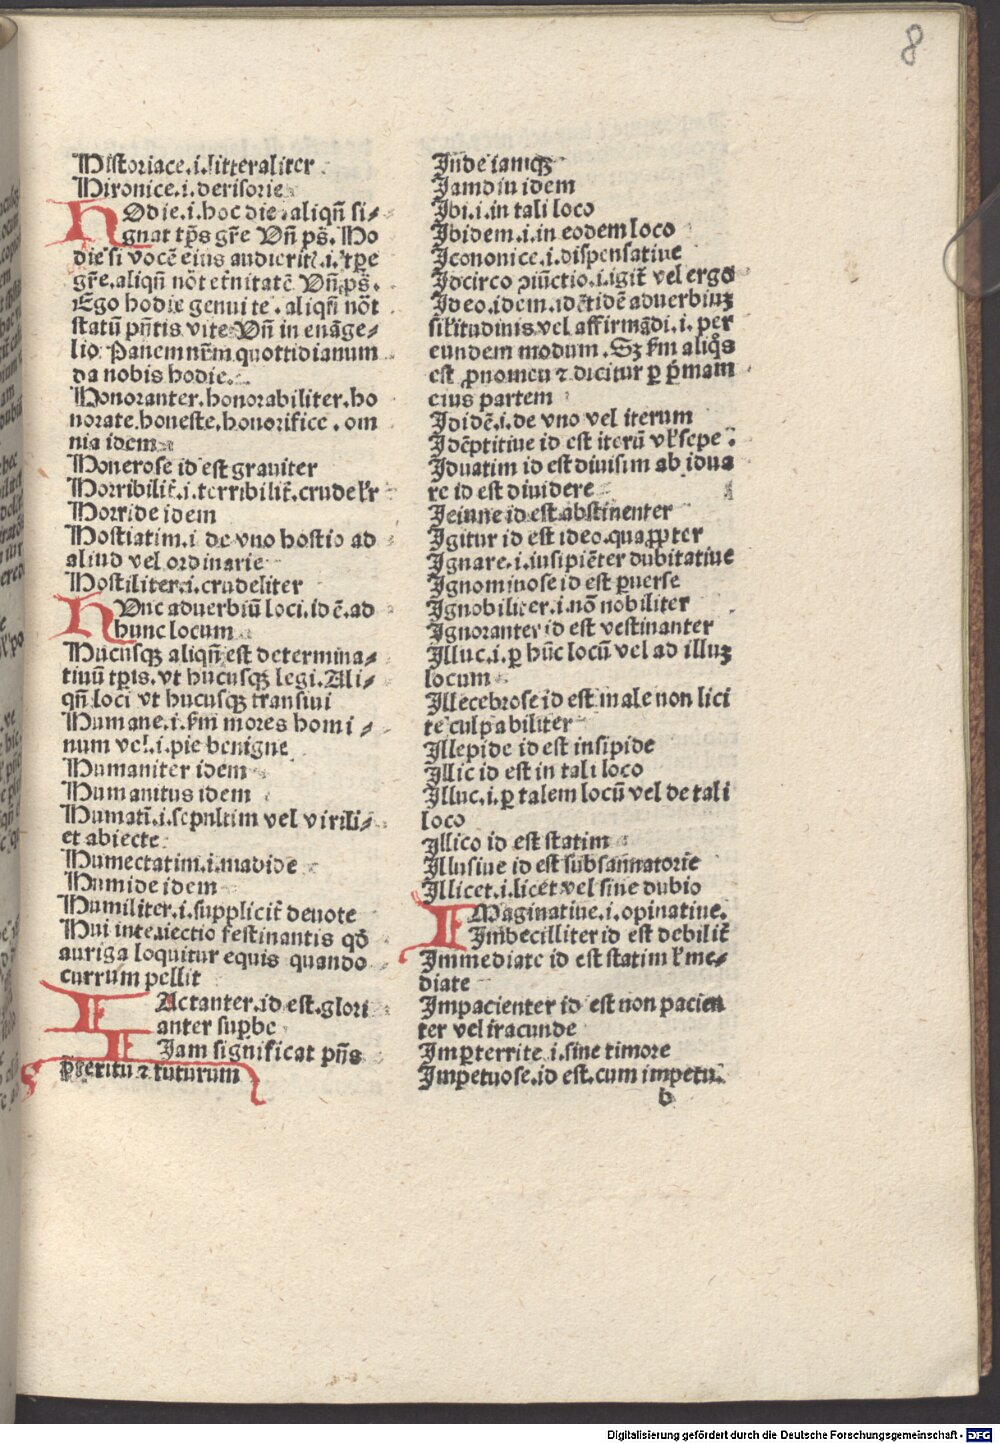 8
Historiace.i.litteraliter
Hironice.i.derisorie
HOdie.i.hoc die.aliqn̄ si⸗
gnat tp̄s gr̄e Vn̄ ps̄. Ho
die si vocē eius audierit̉.i.tp̄e
gr̄e.aliqn̄ nōt et̉nitatē Vn̄.ps̄.
Ego hodie genui te.aliqn̄ nōt
statū pn̄tis vite Vn̄ in euāge⸗
lio Panem nr̄m quottidianum
da nobis hodie.
Honoranter.honorabiliter.ho
norate.honeste.honorifice.om
nia idem
Honerose id est grauiter
Horribilit̉.i.terribilit̉.crudel'r
Horride idem
Hostiatim.i de vno hostio ad
aliud vel ordinarie
Hostiliter.i.crudeliter
HVnc aduerbiū loci.id ē.ad
hunc locum
Hucusqꝫ aliqn̄ est determina⸗
tiuū tp̄is.vt hucusqꝫ legi.Ali⸗
qn̄ loci vt hucusqꝫ transiui
Humane.i.km̄ mores homi⸗
num vel.i.pie benigne
Humaniter idem
Humanitus idem
Humatī.i.sepultim vel virili⸗
et abiecte
Humectatim.i.madide
Humide idem
Humiliter.i.supplicit̉ deuote
Hui interiectio festinantis qđ
auriga loquitur equis quando
currum pellit
IActanter.id est.glori
anter supbe
Iam significat pn̄s
p̄teritū ⁊ futurum
Inde iamqꝫ
Iamdiu idem
Ibi.i.in tali loco
Ibidem.i.in eodem loco
Iconomice.i.dispensatiue
Idcirco ꝯiūctio.i.igit̉ vel ergo
Ideo.idem.idētidē aduerbiuꝫ
sil'itudinis vel affirmādi.i.per
eundem modum.Sꝫ km̄ aliqͦs
est ꝓnomen ⁊ dicitur ꝑ pͥmam
eius partem
Ididē.i.de vno vel iterum
Idēptitiue id est iterū vl' sepe.
Iduatim id est diuisim ab idua
re id est diuidere
Ieiune id est abstinenter
Igitur id est ideo.quaꝓpter
Ignare.i.insipiēter dubitatiue
Ignominose id est ꝑuerse
Ignobiliter.i.nō nobiliter
Ignoranter id est vestinanter
Illuc.i.ꝑ hūc locū vel ad illuꝫ
locum
Illecebrose id est male non lici
te culpabiliter
Illepide id est insipide
Illic id est in tali loco
Illuc.i.ꝑ talem locū vel de tali
loco
Illico id est statim
Illusiue id est subsannatorie
Illicet.i.licet vel sine dubio
IMaginatiue.i.opinatiue.
Imbecilliter id est debilit̉
Immediate id est statim l' me⸗
diate
Impacienter id est non pacien
ter vel iracunde
Imꝑterrite.i.sine timore
Impetuose.id est.cum impetu.
b
Digitalisierung gefördert durch die Deutsche Forschungsgemeinschaft - DFG